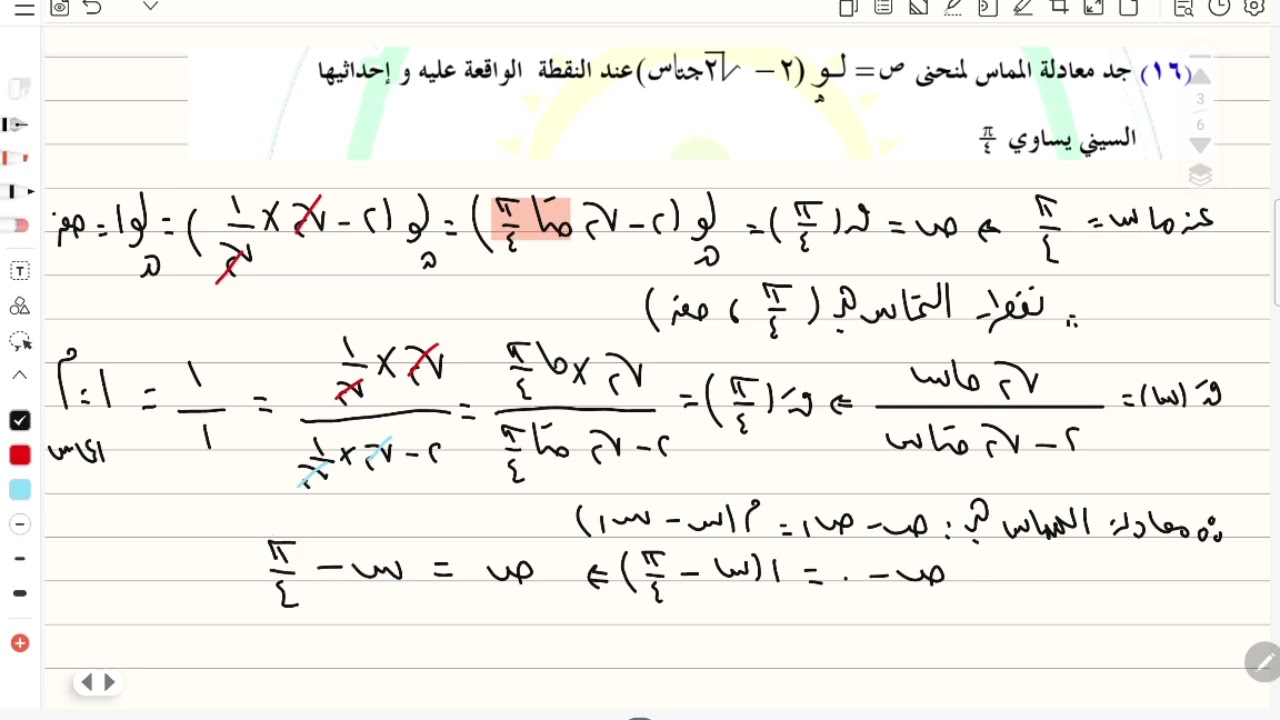 (١٦) جد معادلة المماس لمنحنى ص = لـو هـ (٢ − √٢ جتاس) عند النقطة الواقعة عليه و إحداثيها
السيني يساوي π/٤
3
6
عندما س = π/٤ ⇐ ص = ق(π/٤) = لو هـ (٢ − √٢ جتا π/٤) = لو هـ (٢ − √٢ × ١/√٢) = لو هـ ١ = صفر
∴ نقطة التماس هي (π/٤ ، صفر)
قَ(س) = √٢ جاس / ٢ − √٢ جتاس ⇐ قَ(π/٤) = √٢ × جا π/٤ / ٢ − √٢ جتا π/٤ = √٢ × ١/√٢ / ٢ − √٢ × ١/√٢ = ١/١ = ١ = م
∴ معادلة المماس هي : ص − ص١ = م(س − س١)
ص − ٠ = ١(س − π/٤) ⇐ ص = س − π/٤
T